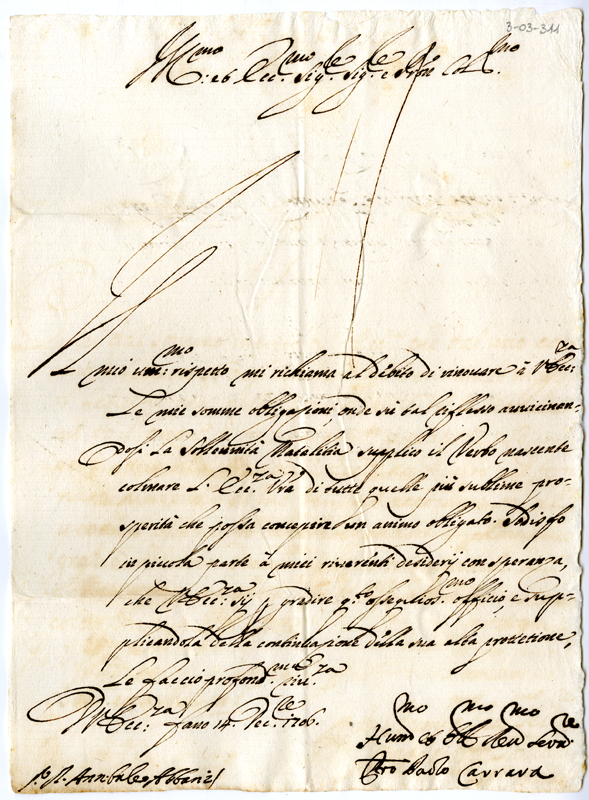 3-03-311
Ill.mo et Ecc.mo Sig.re Sig.re e Pron Col.mo
Il mio um:mo rispetto mi richiama al débito di rinovare à V. Ecc:za
Le mie somme obligazioni, onde sù tal riflesso auuicinan-
dosi La Sollennità Natalizia supplico il Verbo nascente
colmare L'Ecc.za Vra di tutte quelle più sublime pro-
sperità che possa concepire un animo obligato. Sodisfo
in piccola parte à miei riuerenti desiderij con speranza,
che V. Ecc:za sij p gradire q.to ossequios.mo officio, e sup-
plicandola della continuazione della sua alta protettione,
Le faccio profond.ma riu.za
Di V. Ecc:za Fano 14. Xec.re 1706.
Hum.mo et Obb.mo Seru.re
Pro Paolo Carrara
S.r D. Annibale Albani